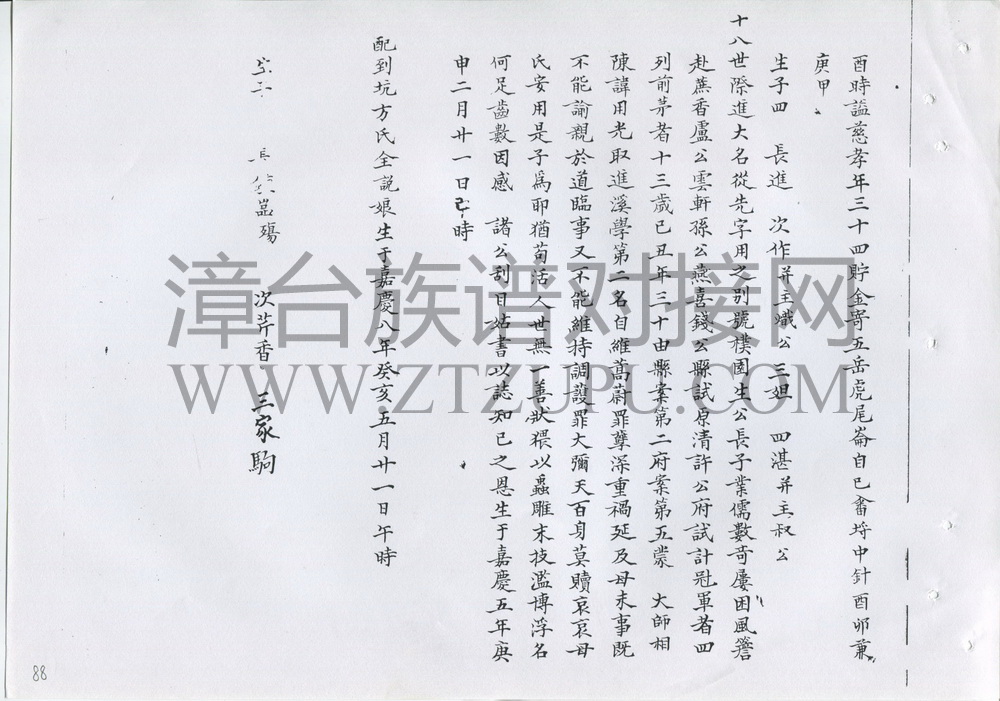 酉時謚慈孝年三十四貯金寄五岳虎尾崙自己畬埒中針酉卯兼
庚甲
生子四　長進　次作并主熾公　三妲　四湛并主叔公
十八世際進大名從先字用之別號樸園生公長子業儒數奇屢困風簷
赴蔗香盧公雲軒孫公燕喜錢公縣試原清許公府試計冠軍者四
列前茅者十三歲己丑年三十由縣案第二府案第五蒙　大師相
陳諱用光取進溪學第二名自維蒿蔚罪孽深重禍延及母未事既
不能諭親於道臨事又不能維持調護罪大彌天百身莫贖哀哀母
氏安用是子爲耶猶苟活人世無一善狀猥以蟲雕末技濫博浮名
何足齒數因感　諸公刮目姑書以誌知己之恩生于嘉慶五年庚
申二月廿一日時
配到坑方氏全說娘生于嘉慶八年癸亥五月廿一日午時
次芹香　三家駒
漳台族谱对接网
WWW.ZTZUPU.COM
88